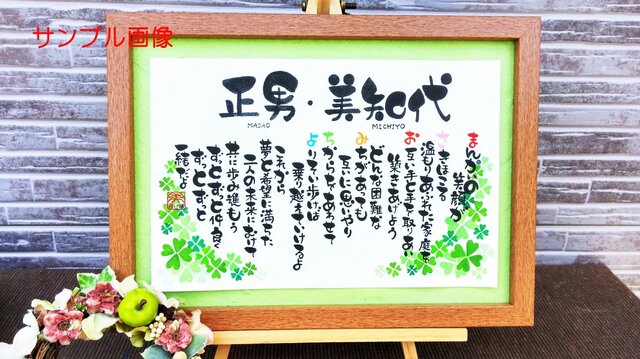 サンプル画像
正男・美知代
MASAO
MICHIYO
まんかいの
笑顔が
さきほこる
温もりあふれた家庭を
お互い手と手を取りあい
築きあげよう
どんな困難な
みちがあっても
互いに思いやり
ちからをあわせて
よりそい歩けば
乗り越えていけるよ
これから
夢と希望に満ちた
二人の未来において
共に歩み進もう
ずっとずっと仲良く
ずっとずっと
一緒だよ